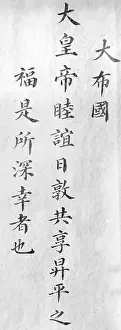 大布國
大皇帝睦誼日敦共享昇平之
福是所深幸者也